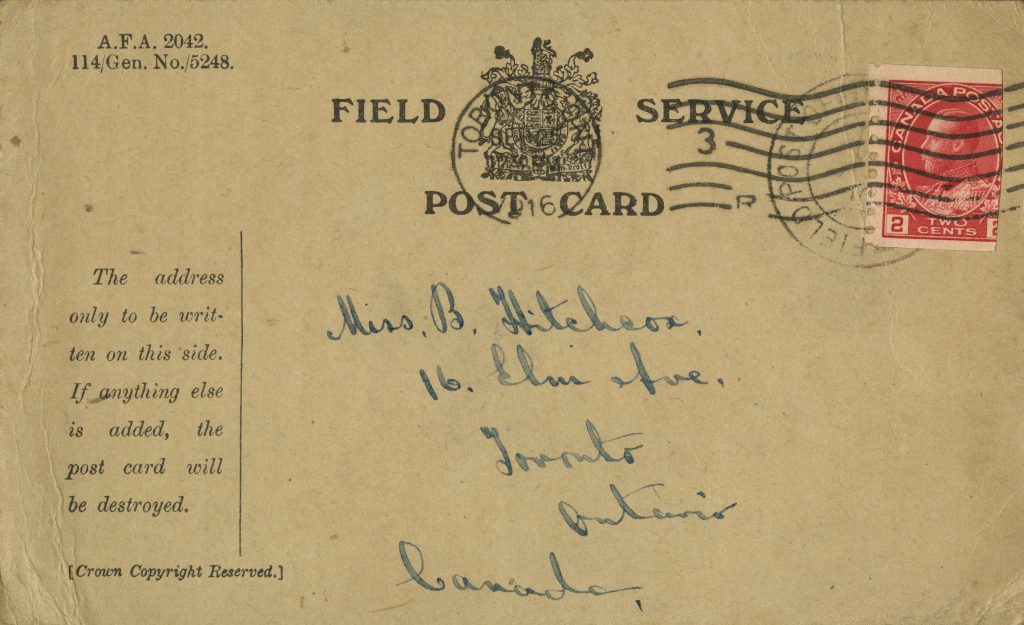 A.F.A. 2042.
114/Gen. No./5248.
FIELD SERVICE
POST CARD
TORONTO, ONT.
16
3
R
FIELD POST
CANADA POST
2 TWO CENTS 2
The address
only to be writ-
ten on this side.
If anything else
is added, the
post card will
be destroyed.
[Crown Copyright Reserved.]
Miss. B. Hitchcox.
16. Elm Ave.
Toronto
Ontario
Canada,